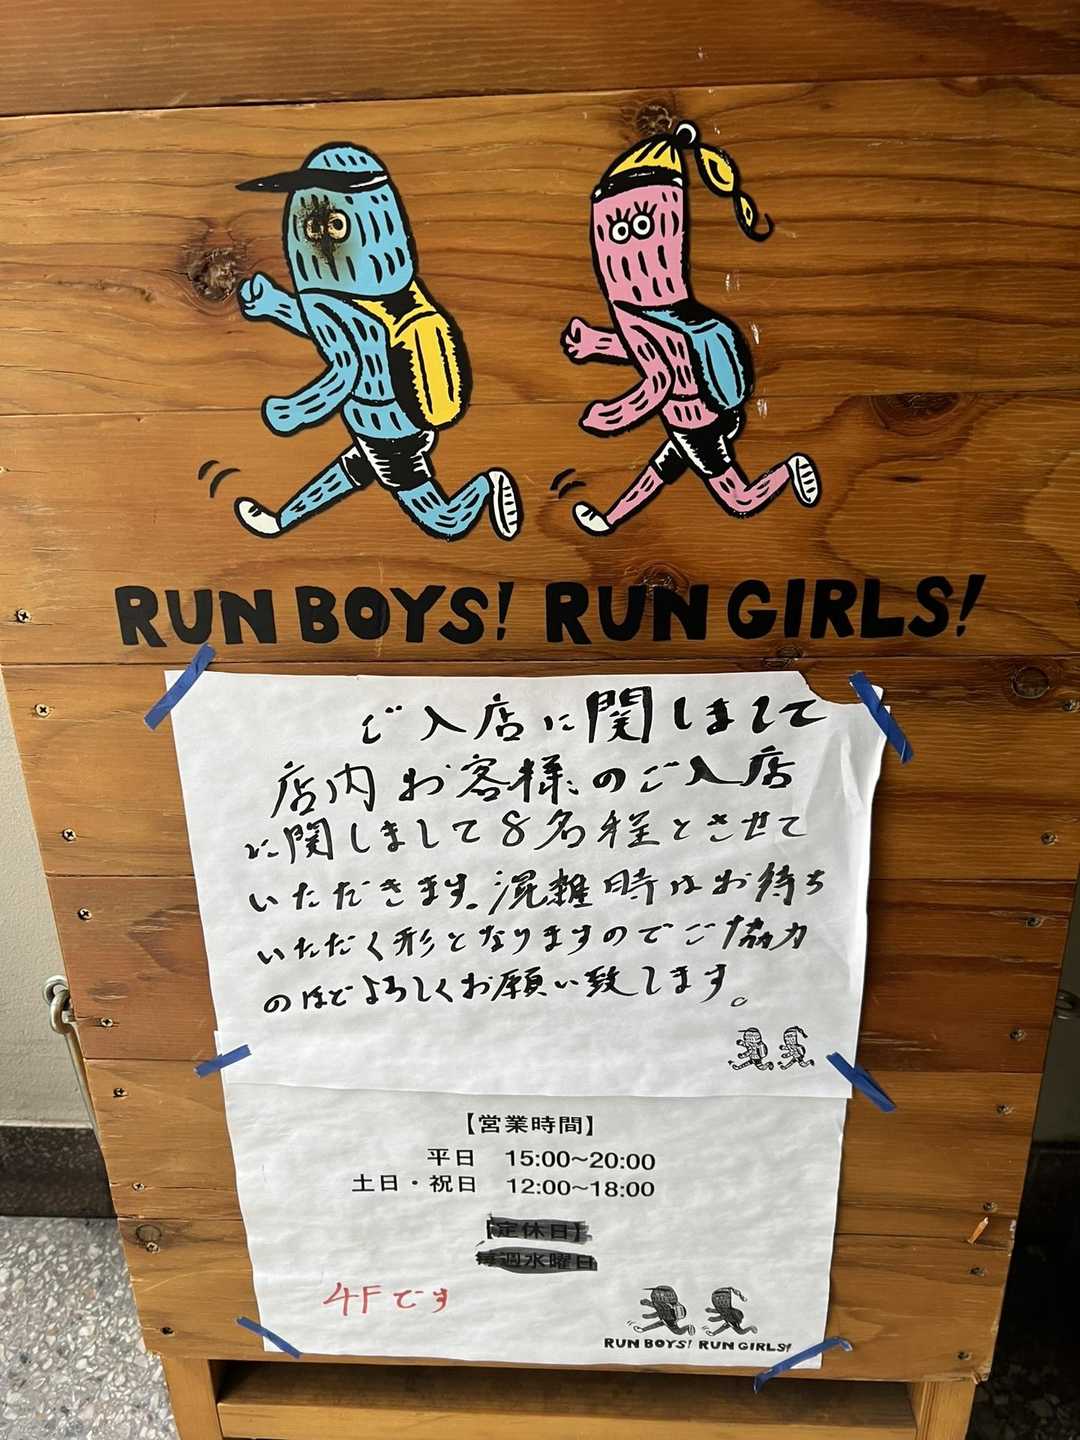 RUN BOYS! RUN GIRLS!
ご入店に関しまして
店内お客様のご入店
に関しまして8名程とさせて
いただきます。混雑時はお待ち
いただく形となりますのでご協力
のほどよろしくお願い致します。
【営業時間】
平日 15:00~20:00
土日・祝日 12:00~18:00
【定休日】
毎週水曜日
4Fです
RUN BOYS! RUN GIRLS!